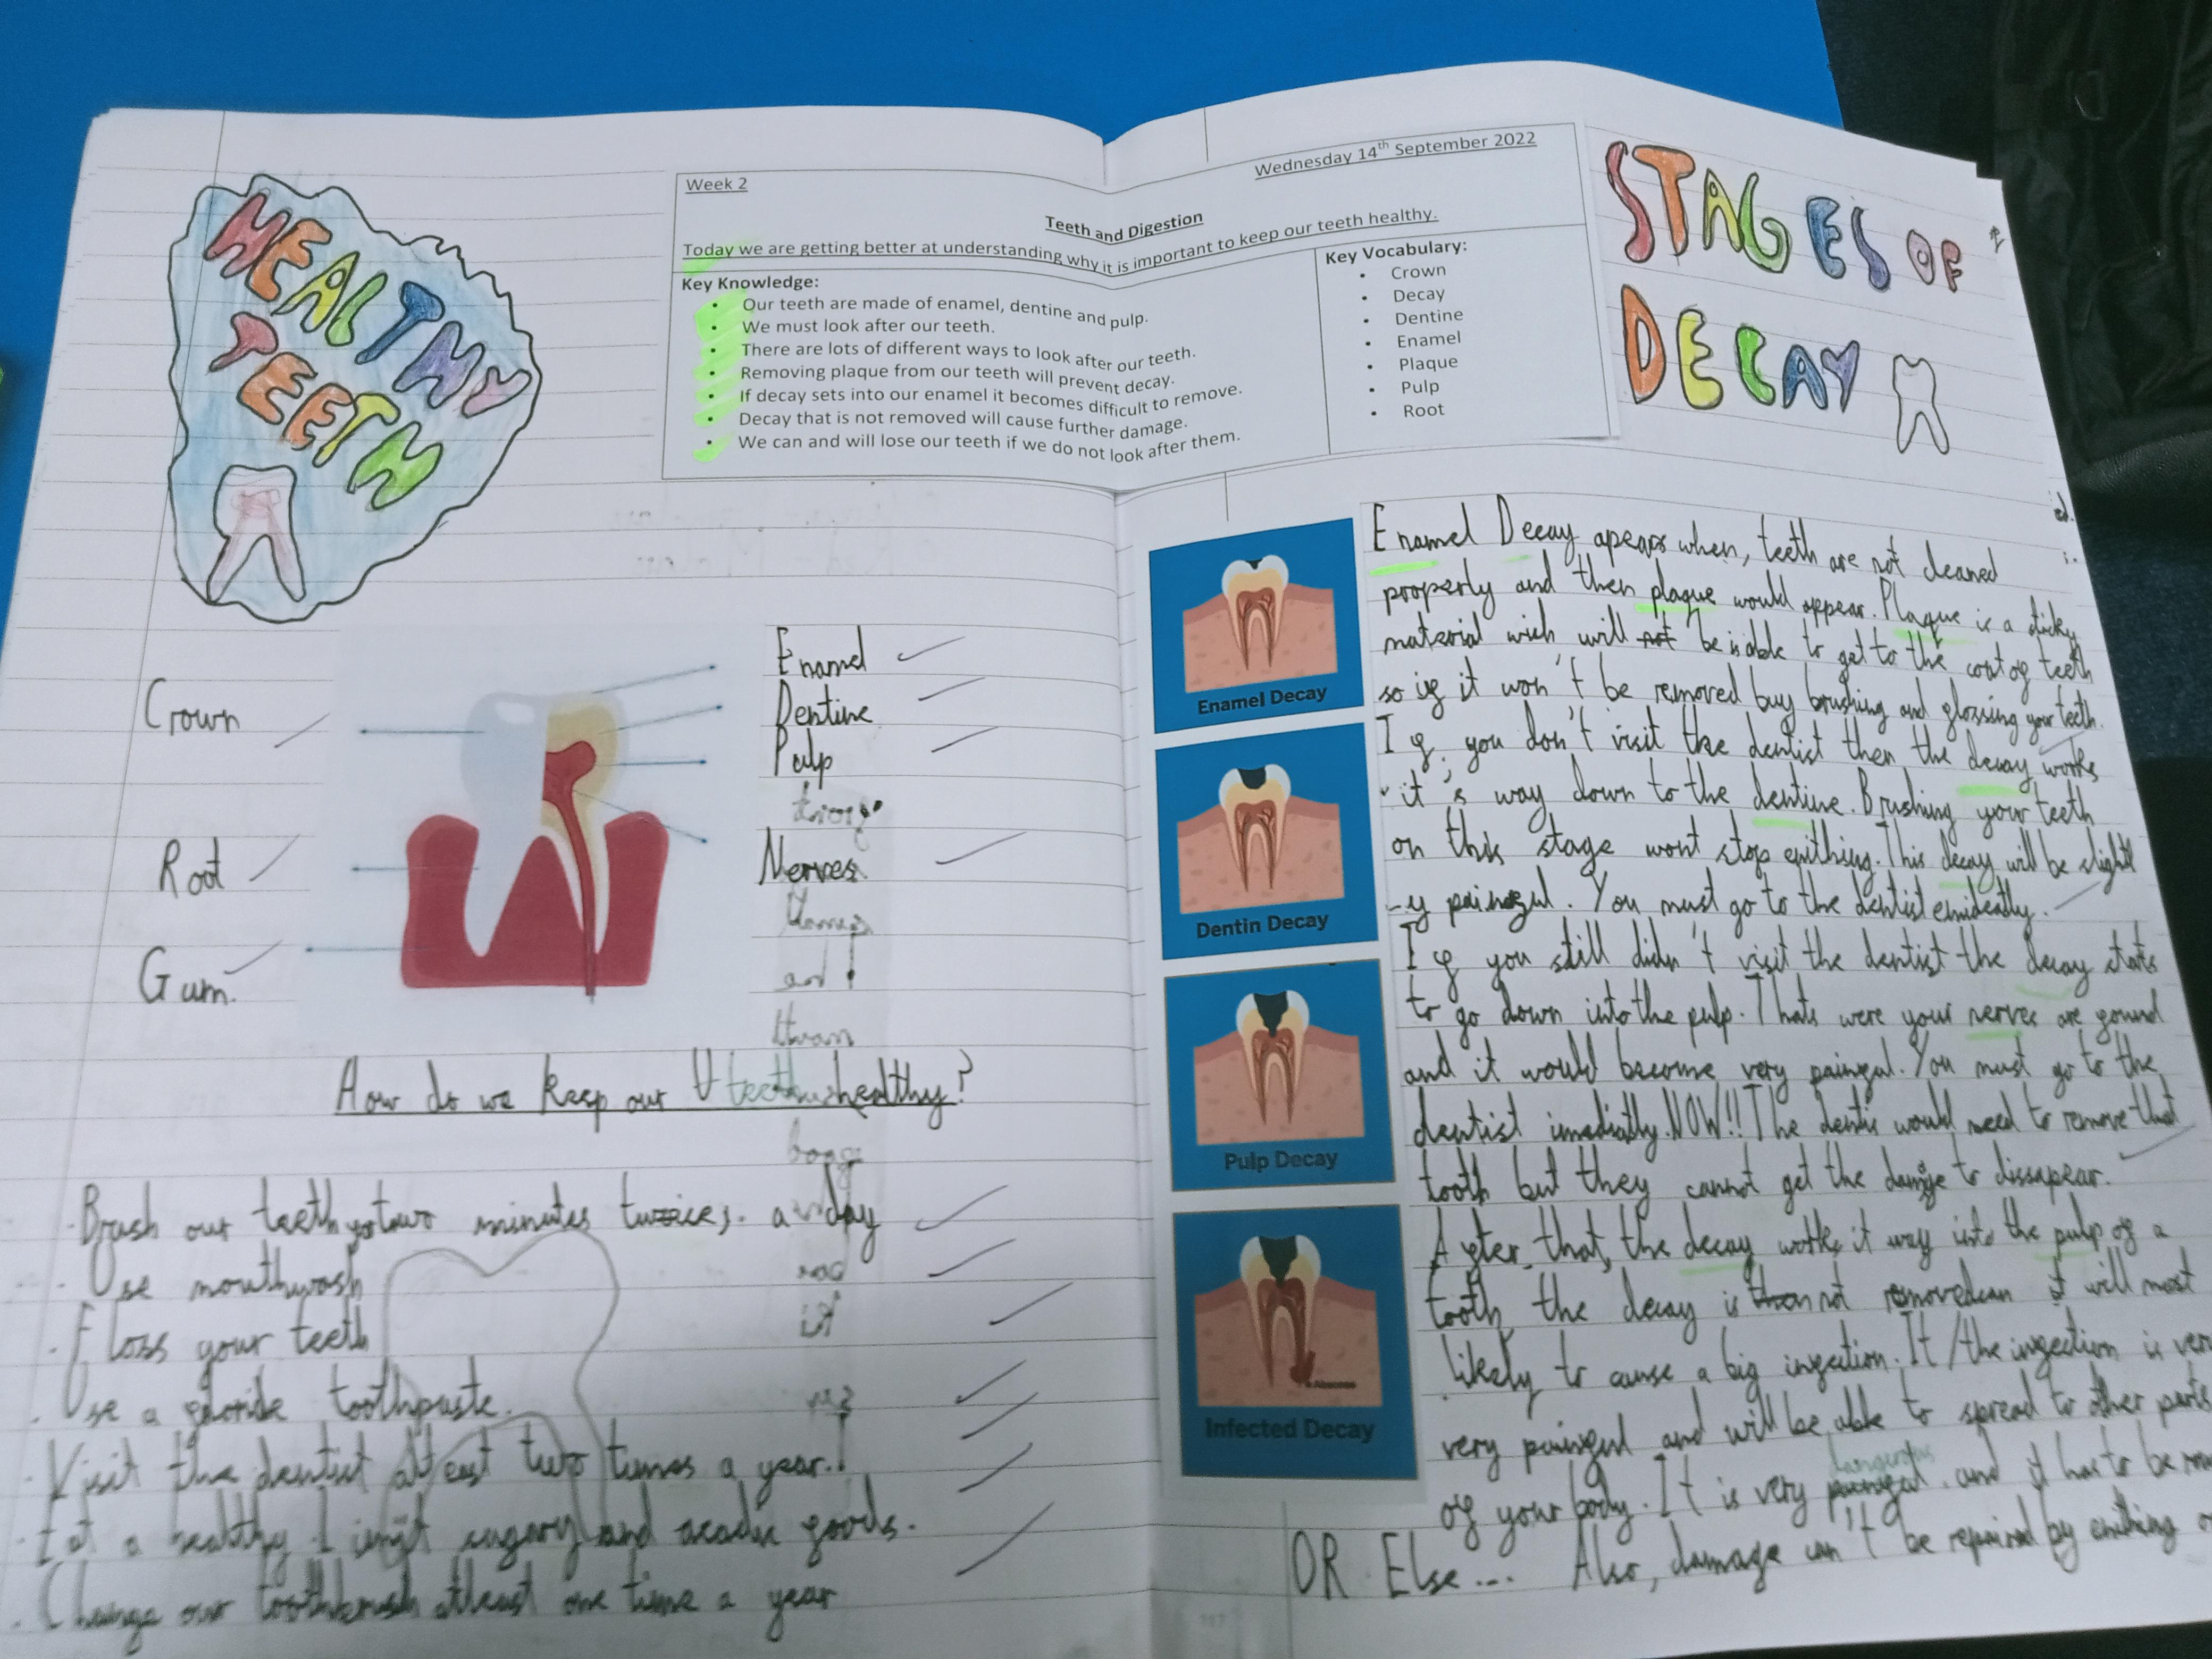 HEALTHY
TEETH
Week 2
Wednesday 14th September 2022
Teeth and Digestion
Today we are getting better at understanding why it is important to keep our teeth healthy.
Key Knowledge:
• Our teeth are made of enamel, dentine and pulp.
• We must look after our teeth.
• There are lots of different ways to look after our teeth.
• Removing plaque from our teeth will prevent decay.
• If decay sets into our enamel it becomes difficult to remove.
• Decay that is not removed will cause further damage.
• We can and will lose our teeth if we do not look after them.
Key Vocabulary:
• Crown
• Decay
• Dentine
• Enamel
• Plaque
• Pulp
• Root
Crown
Root
Gum.
Enamel
Dentine
Pulp
Nerves
How do we keep our teeth healthy?
· Brush our teeth for two minutes twice a day
· Use mouthwash
· Floss your teeth
· Use a toothpaste.
· Visit the dentist atleast two times a year.
· Eat a healthy. Limit sugary and foods.
· Change our toothbrush atleast one time a year
STAGES OF
DECAY
Enamel Decay
Dentin Decay
Pulp Decay
Infected Decay
Enamel Decay apears when, teeth are not cleaned
properly and then plaque would appear. Plaque is a sticky
material wich will not be able to get to the coat of teeth
so if it won't be removed buy brushing and flossing your teeth.
If you don't visit the dentist then the decay works
it's way down to the dentine. Brushing your teeth
on this stage wont stop enithing. This decay will be slight
-y painful. You must go to the dentist
If you still didn't visit the dentist the decay starts
to go down into the pulp. Thats were your nerves are found
and it would become very painful. You must go to the
dentist imediatly. NOW!! The dentis would need to remove that
tooth but they cannot get the damage to dissapear.
After that, the decay works it way into the pulp of a
tooth the decay is not removed it will most
likely to cause a big infection. It/the infection is very
very painful and will be able to spread to other parts
of your body. It is very dangerous and it has to be
OR Else... Also, damage can't be repaired by enithing